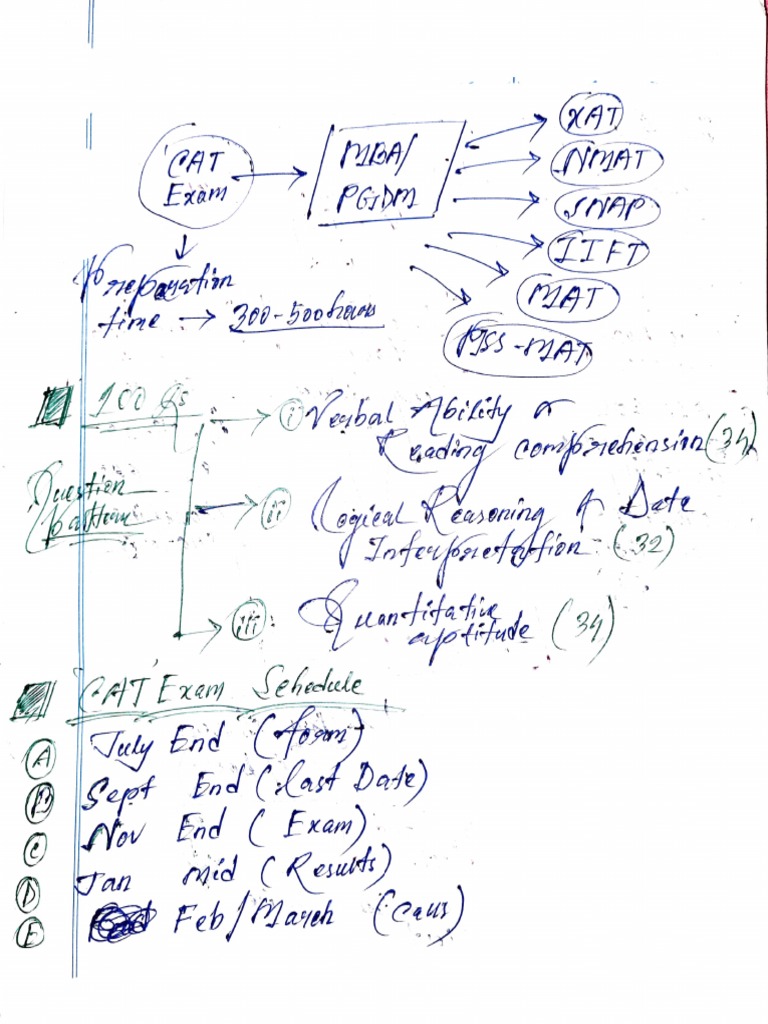 CAT
Exam
MBA/
PGDM
XAT
NMAT
SNAP
IIFT
MAT
Preparation
time → 300-500 hours
100 Qs
Question
Pattern
(i) Verbal Ability &
Reading comprehension (34)
(ii) Logical Reasoning & Date
Interpretation (32)
(iii) Quantitative
aptitude (34)
CAT Exam Schedule
(A) July End (form)
(B) Sept End (Last Date)
(C) Nov End (Exam)
(D) Jan Mid (Results)
(E) Feb/March (Calls)